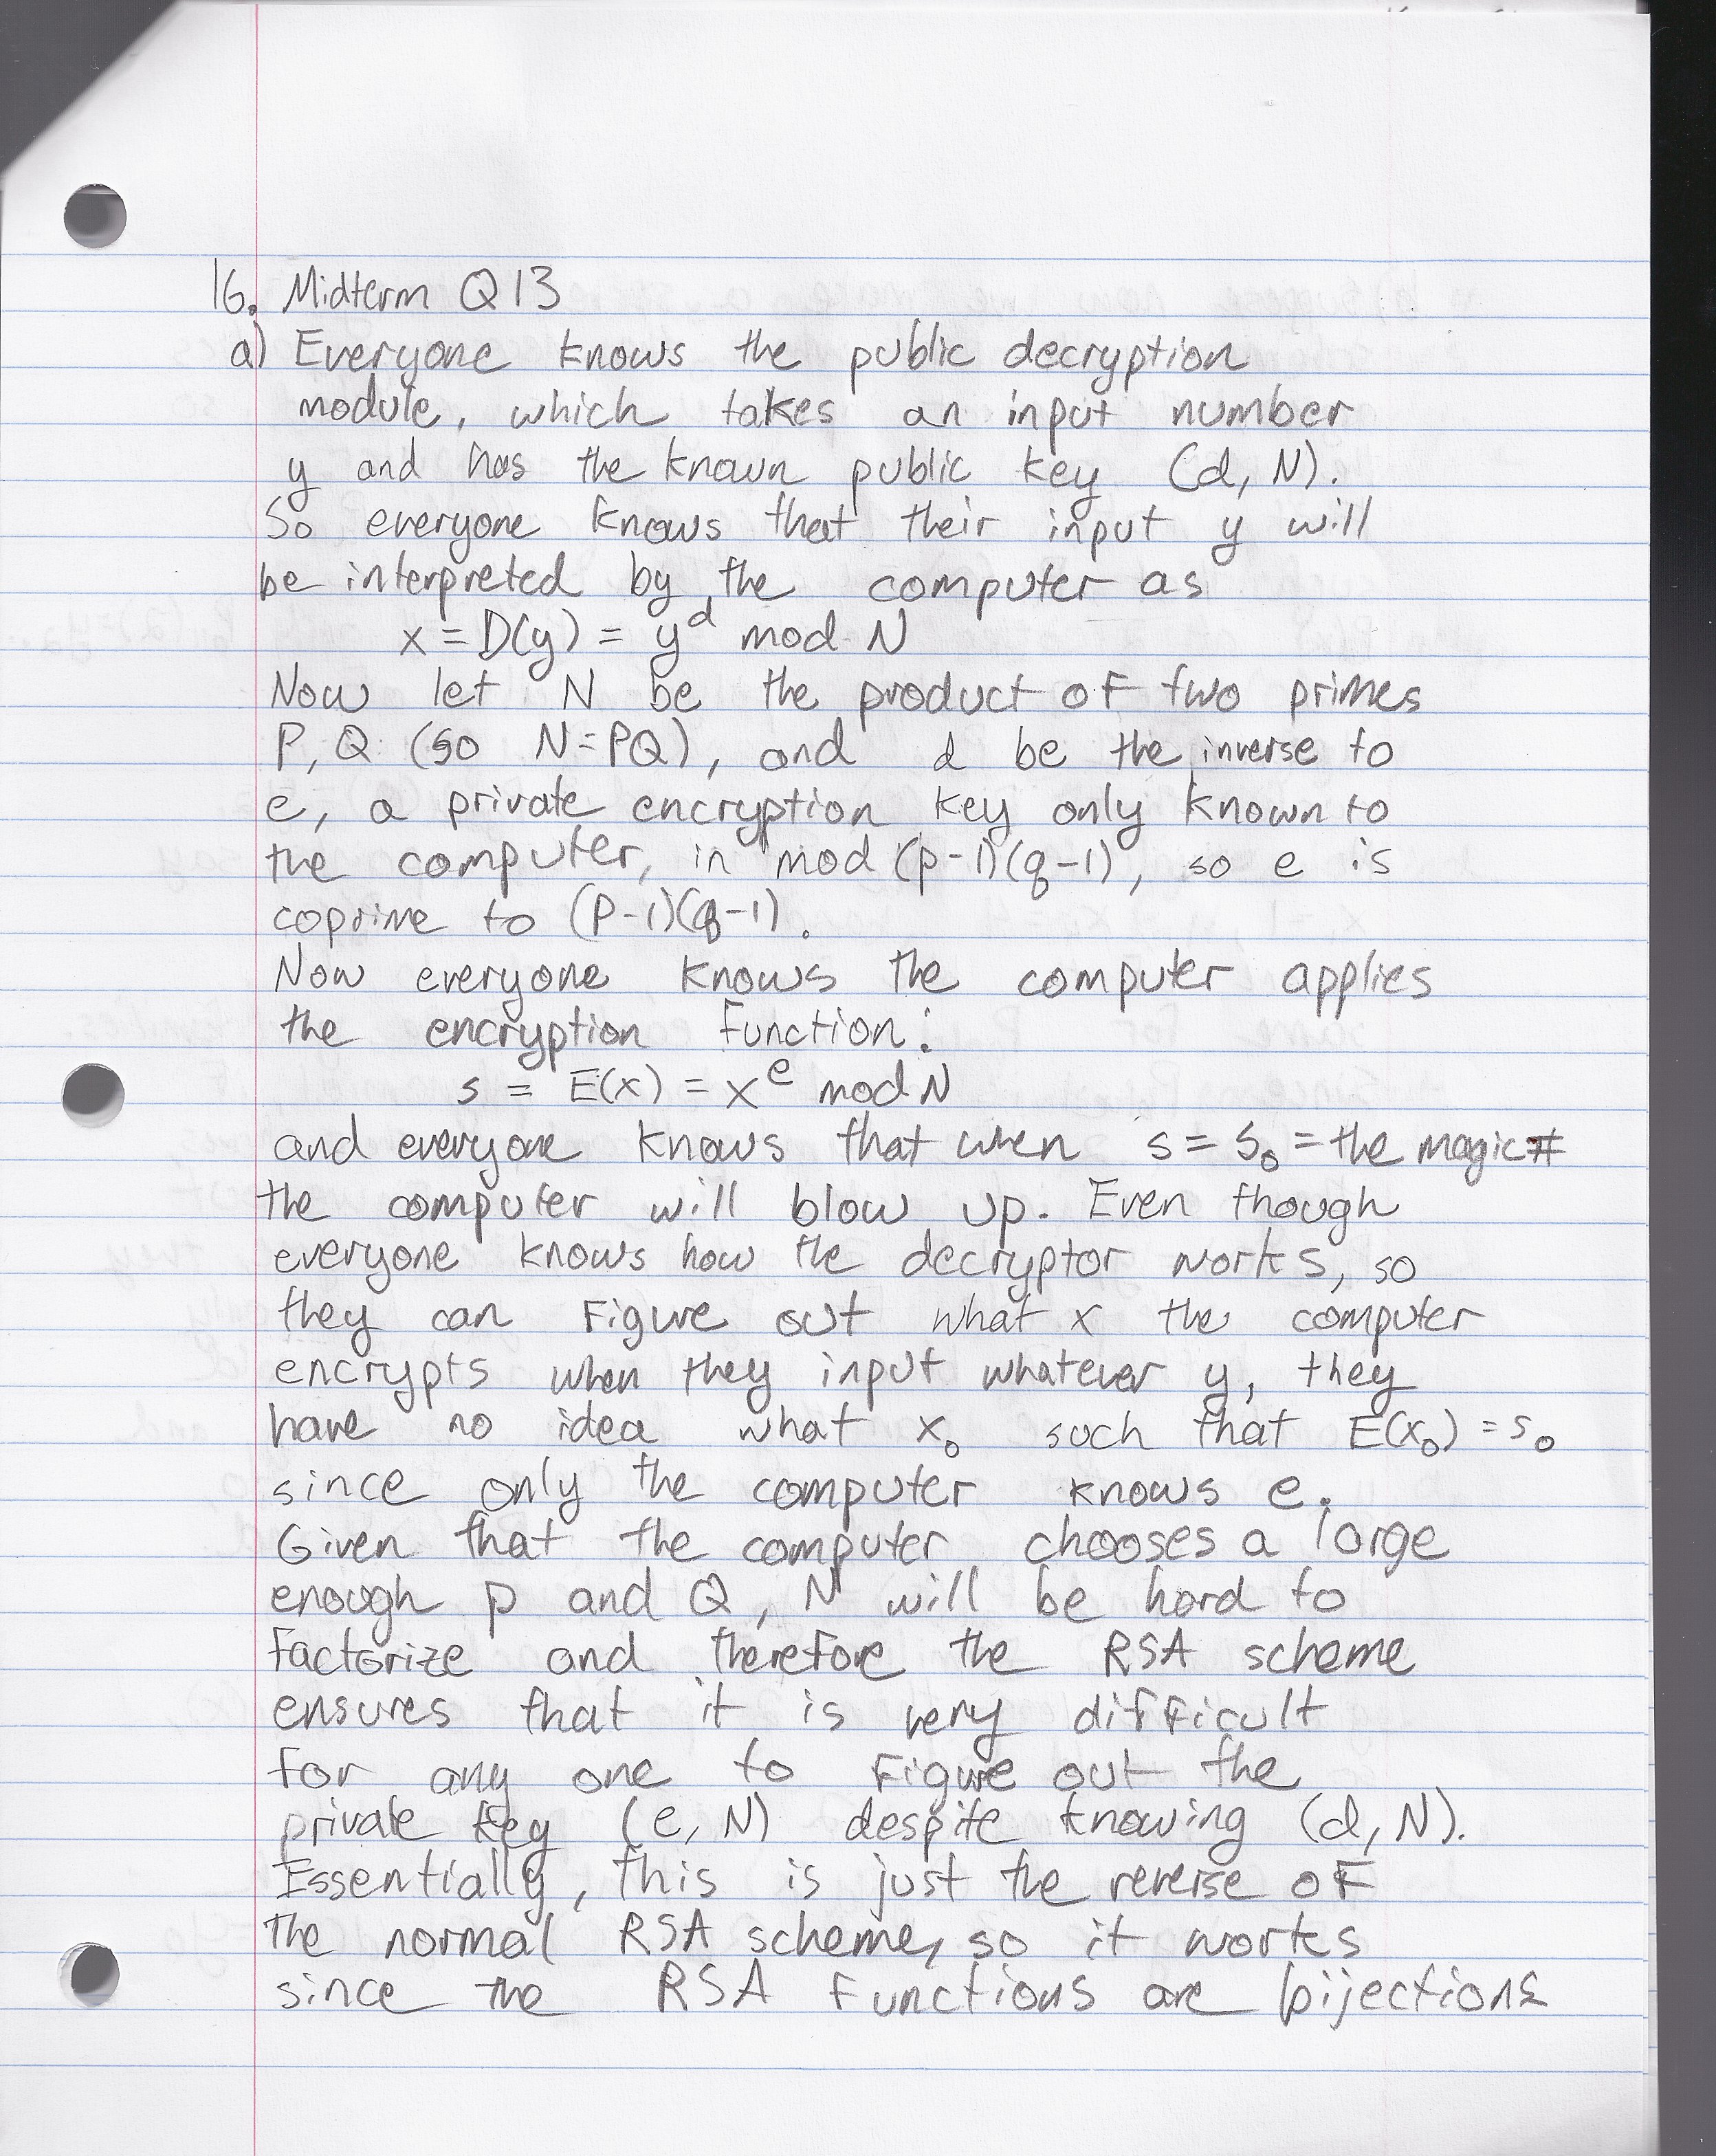 16. Midterm Q13
a) Everyone knows the public decryption
module, which takes an input number
y and has the known public key (d, N).
So everyone knows that their input y will
be interpreted by the computer as
x = D(y) = y^d mod N
Now let N be the product of two primes
P, Q (so N=PQ), and d be the inverse to
e, a private encryption key only known to
the computer, in mod (p-1)(q-1), so e is
coprime to (p-1)(q-1).
Now everyone knows the computer applies
the encryption function:
s = E(x) = x^e mod N
and everyone knows that when s = s₀ = the magic #
the computer will blow up. Even though
everyone knows how the decryptor works, so
they can figure out what x the computer
encrypts when they input whatever y, they
have no idea what x₀ such that E(x₀) = s₀
since only the computer knows e.
Given that the computer chooses a large
enough p and Q, N will be hard to
factorize and therefore the RSA scheme
ensures that it is very difficult
for any one to figure out the
private key (e, N) despite knowing (d, N).
Essentially, this is just the reverse of
the normal RSA scheme, so it works
since the RSA functions are bijections